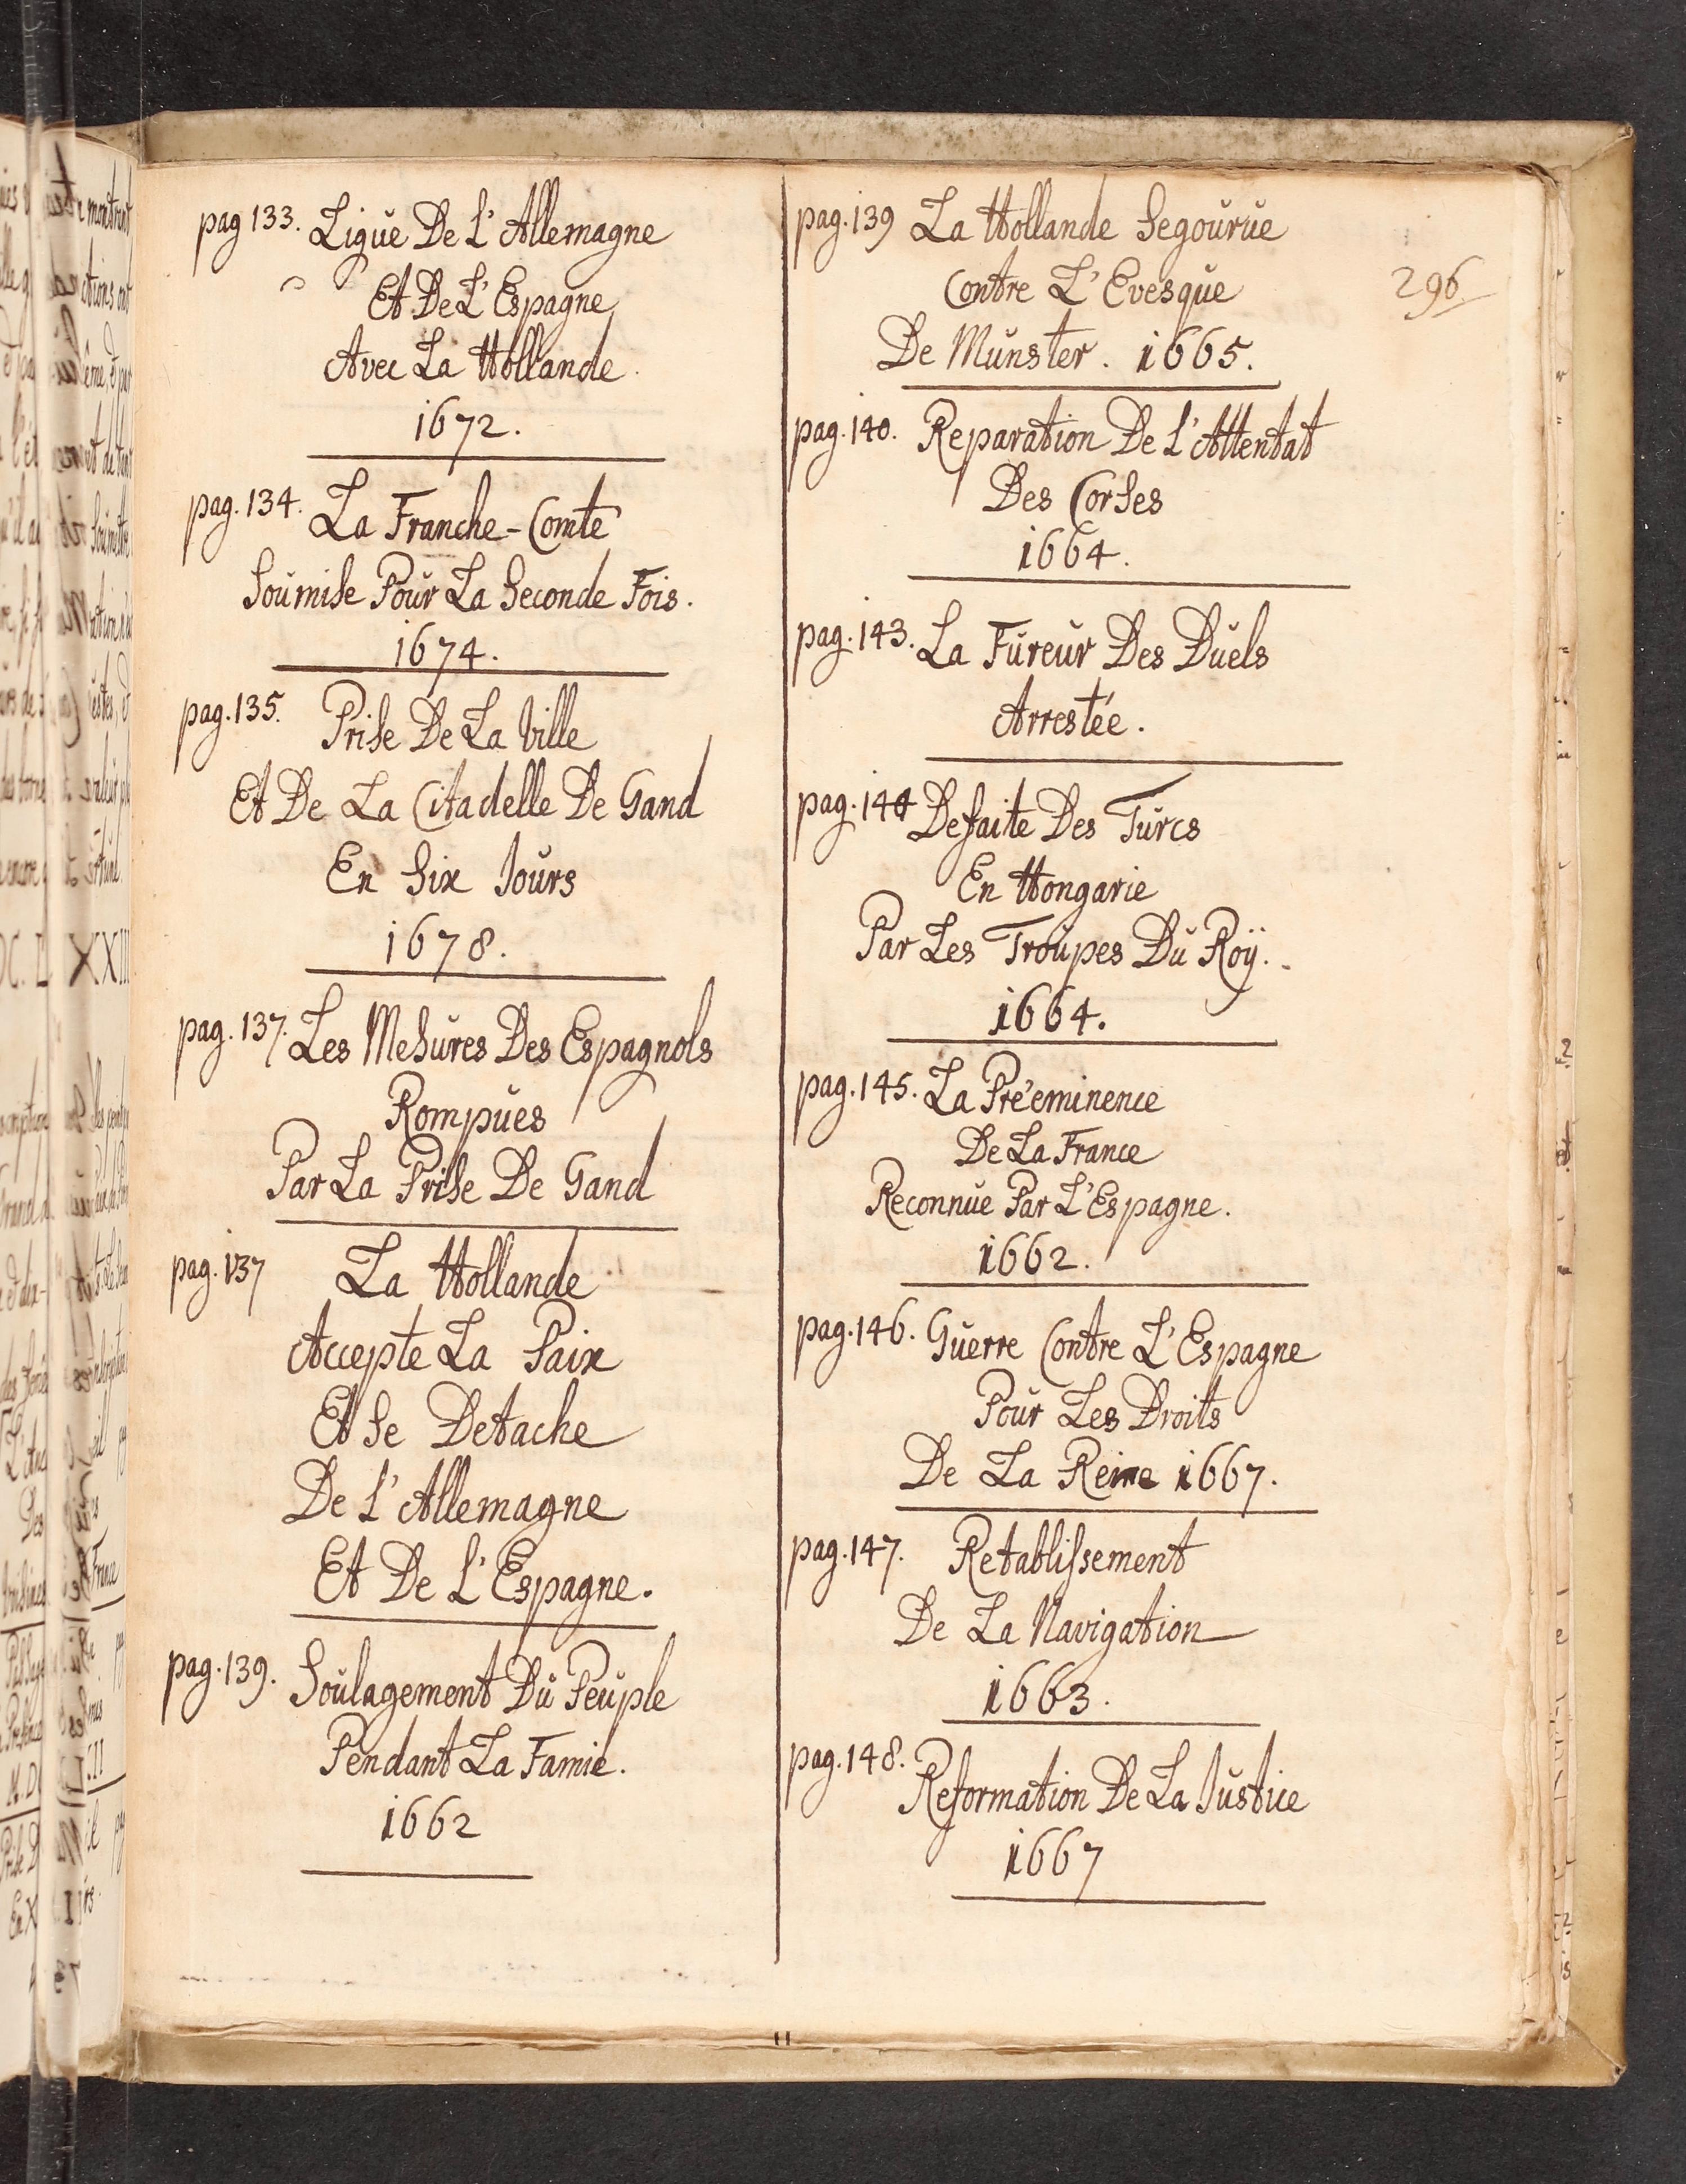 pag 133. Ligŭe De L'Allemagne
Et De L'Espagne
Avec La Hollande.
1672.
pag. 134. La Franche-Comte
Soŭmise Poŭr La Seconde Fois.
1674.
pag. 135. Prise De La Ville
Et De La Citadelle De Gand
En Six Joŭrs
1678.
pag. 137. Les Mesŭres Des Espagnols
Rompŭes
Par La Prise De Gand
pag. 137 La Hollande
Accepte La Paix
Et Se Detache
De L'Allemagne
Et De L'Espagne.
pag. 139. Soŭlagement Dŭ Peŭple
Pendant La Famie.
1662
pag. 139 La Hollande Segoŭrŭe
Contre L'Evesqŭe
De Mŭnster. 1665.
296
pag. 140. Reparation De L'Attentat
Des Corses
1664.
pag. 143. La Fŭreŭr Des Dŭels
Arrestée.
pag. 144 Defaite Des Tŭrcs
En Hongarie
Par Les Troŭpes Dŭ Roÿ.
1664.
pag. 145. La Pré'eminence
De La France
Reconnŭe Par L'Espagne.
1662.
pag. 146. Gŭerre Contre L'Espagne
Poŭr Les Droits
De La Reine 1667.
pag. 147. Retablissement
De La Navigation
1663.
pag. 148. Reformation De La Jŭstice
1667